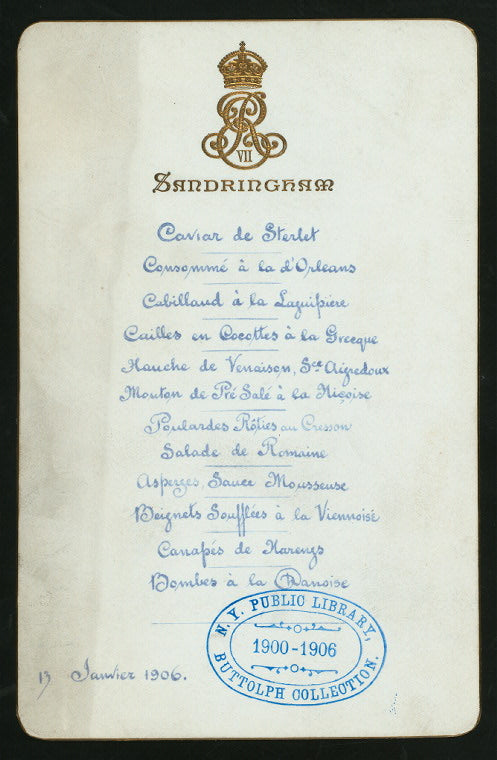 VII
SANDRINGHAM
Caviar de Sterlet
Consommé à la d'Orleans
Cabillaud à la Laguipière
Cailles en Cocottes à la Grecque
Hanche de Venaison, Sce Aigredoux
Mouton de Pré Salé à la Niçoise
Poulardes Rôties au Cresson
Salade de Romaine
Asperges, Sauce Mousseuse
Beignets Soufflées à la Viennoise
Canapés de Harengs
Bombes à la Danoise
N. Y. PUBLIC LIBRARY,
1900-1906
BUTTOLPH COLLECTION.
13 Janvier 1906.